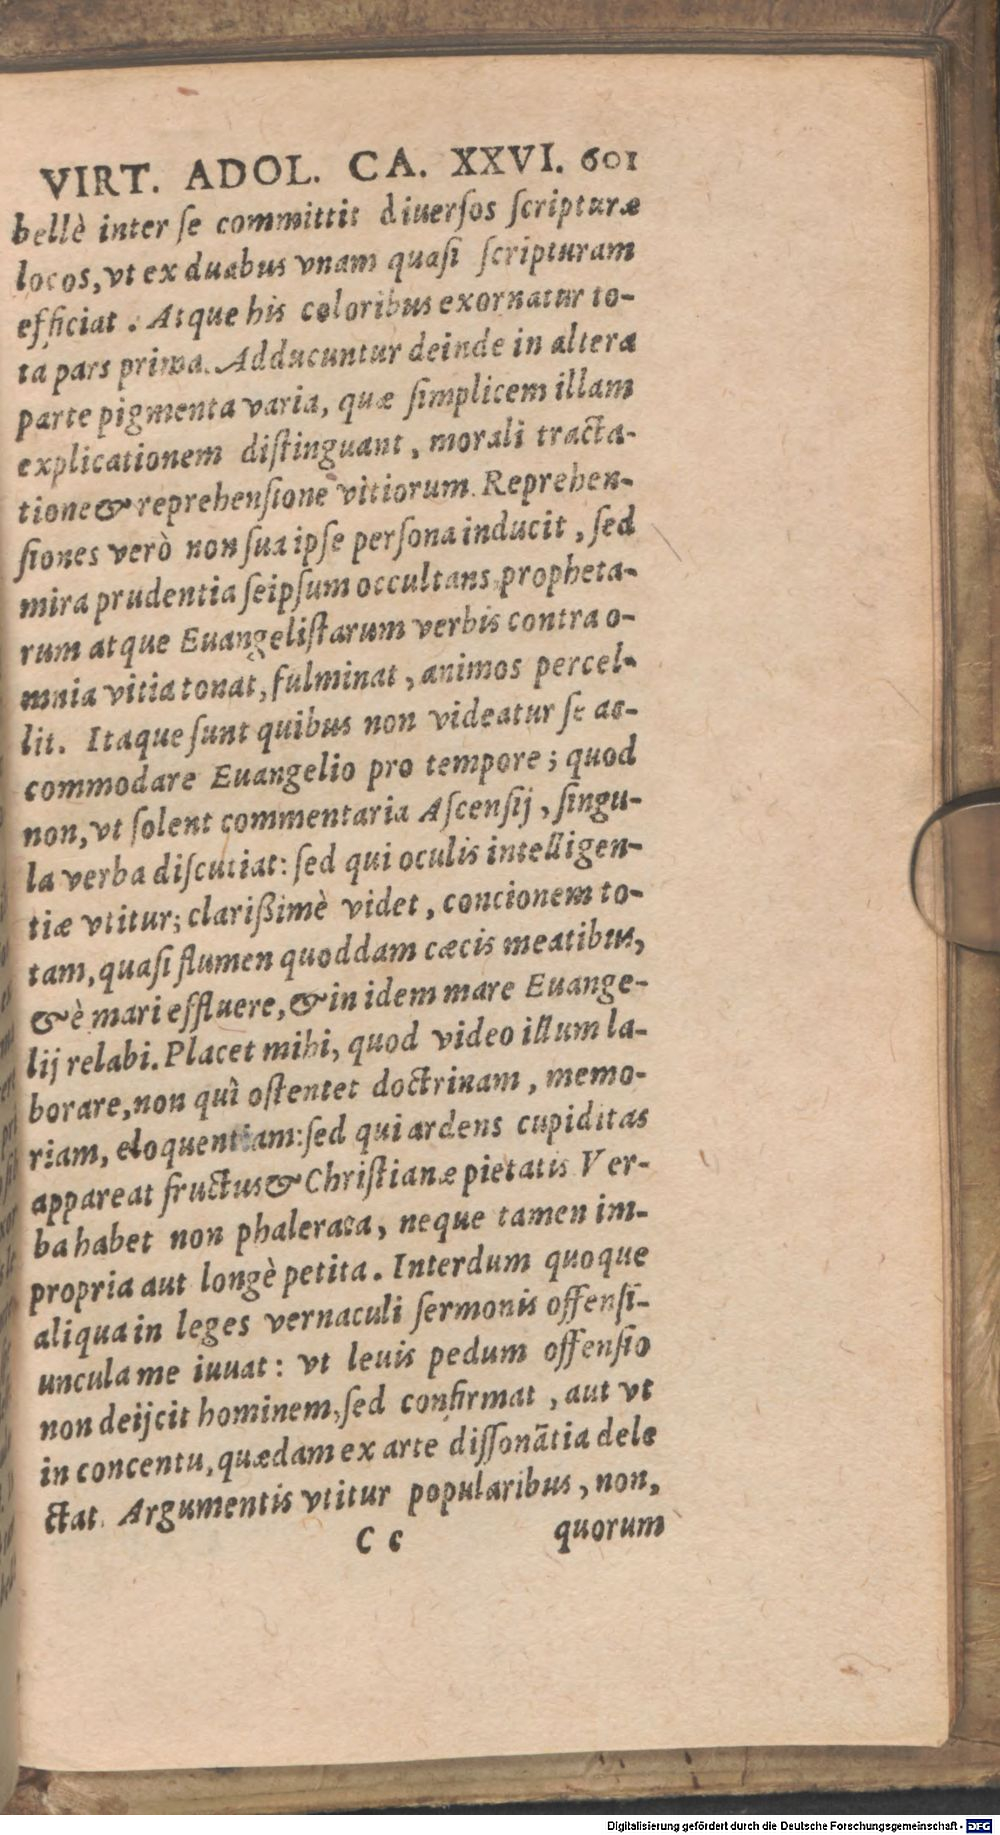 VIRT. ADOL. CA. XXVI. 601
bellè inter ſe committit diuerſos ſcripturæ
locos, vt ex duabus vnam quaſi ſcripturam
efficiat. Atque his coloribus exornatur to-
ta pars prima. Adducuntur deinde in altera
parte pigmenta varia, quæ ſimplicem illam
explicationem diſtinguant, morali tracta-
tione & reprehenſione vitiorum. Reprehen-
ſiones verò non ſua ipſe perſona inducit, ſed
mira prudentia ſeipſum occultans, propheta-
rum atque Euangeliſtarum verbis contra o-
mnia vitia tonat, fulminat, animos percel-
lit. Itaque ſunt quibus non videatur ſe ac-
commodare Euangelio pro tempore; quod
non, vt ſolent commentaria Aſcenſij, ſingu-
la verba diſcutiat: ſed qui oculis intelligen-
tiæ vtitur; clarißimè videt, concionem to-
tam, quaſi flumen quoddam cæcis meatibus,
& è mari effluere, & in idem mare Euange-
lij relabi. Placet mihi, quod video illum la-
borare, non quì oſtentet doctrinam, memo-
riam, eloquentiam: ſed qui ardens cupiditas
appareat fructus & Chriſtianæ pietatis. Ver-
ba habet non phalerata, neque tamen im-
propria aut longè petita. Interdum quoque
aliqua in leges vernaculi ſermonis offenſi-
uncula me iuuat: vt leuis pedum offenſio
non deijcit hominem, ſed confirmat, aut vt
in concentu, quædam ex arte diſſonãtia dele
ctat. Argumentis vtitur popularibus, non,
C c quorum
Digitalisierung gefördert durch die Deutsche Forschungsgemeinschaft - DFG